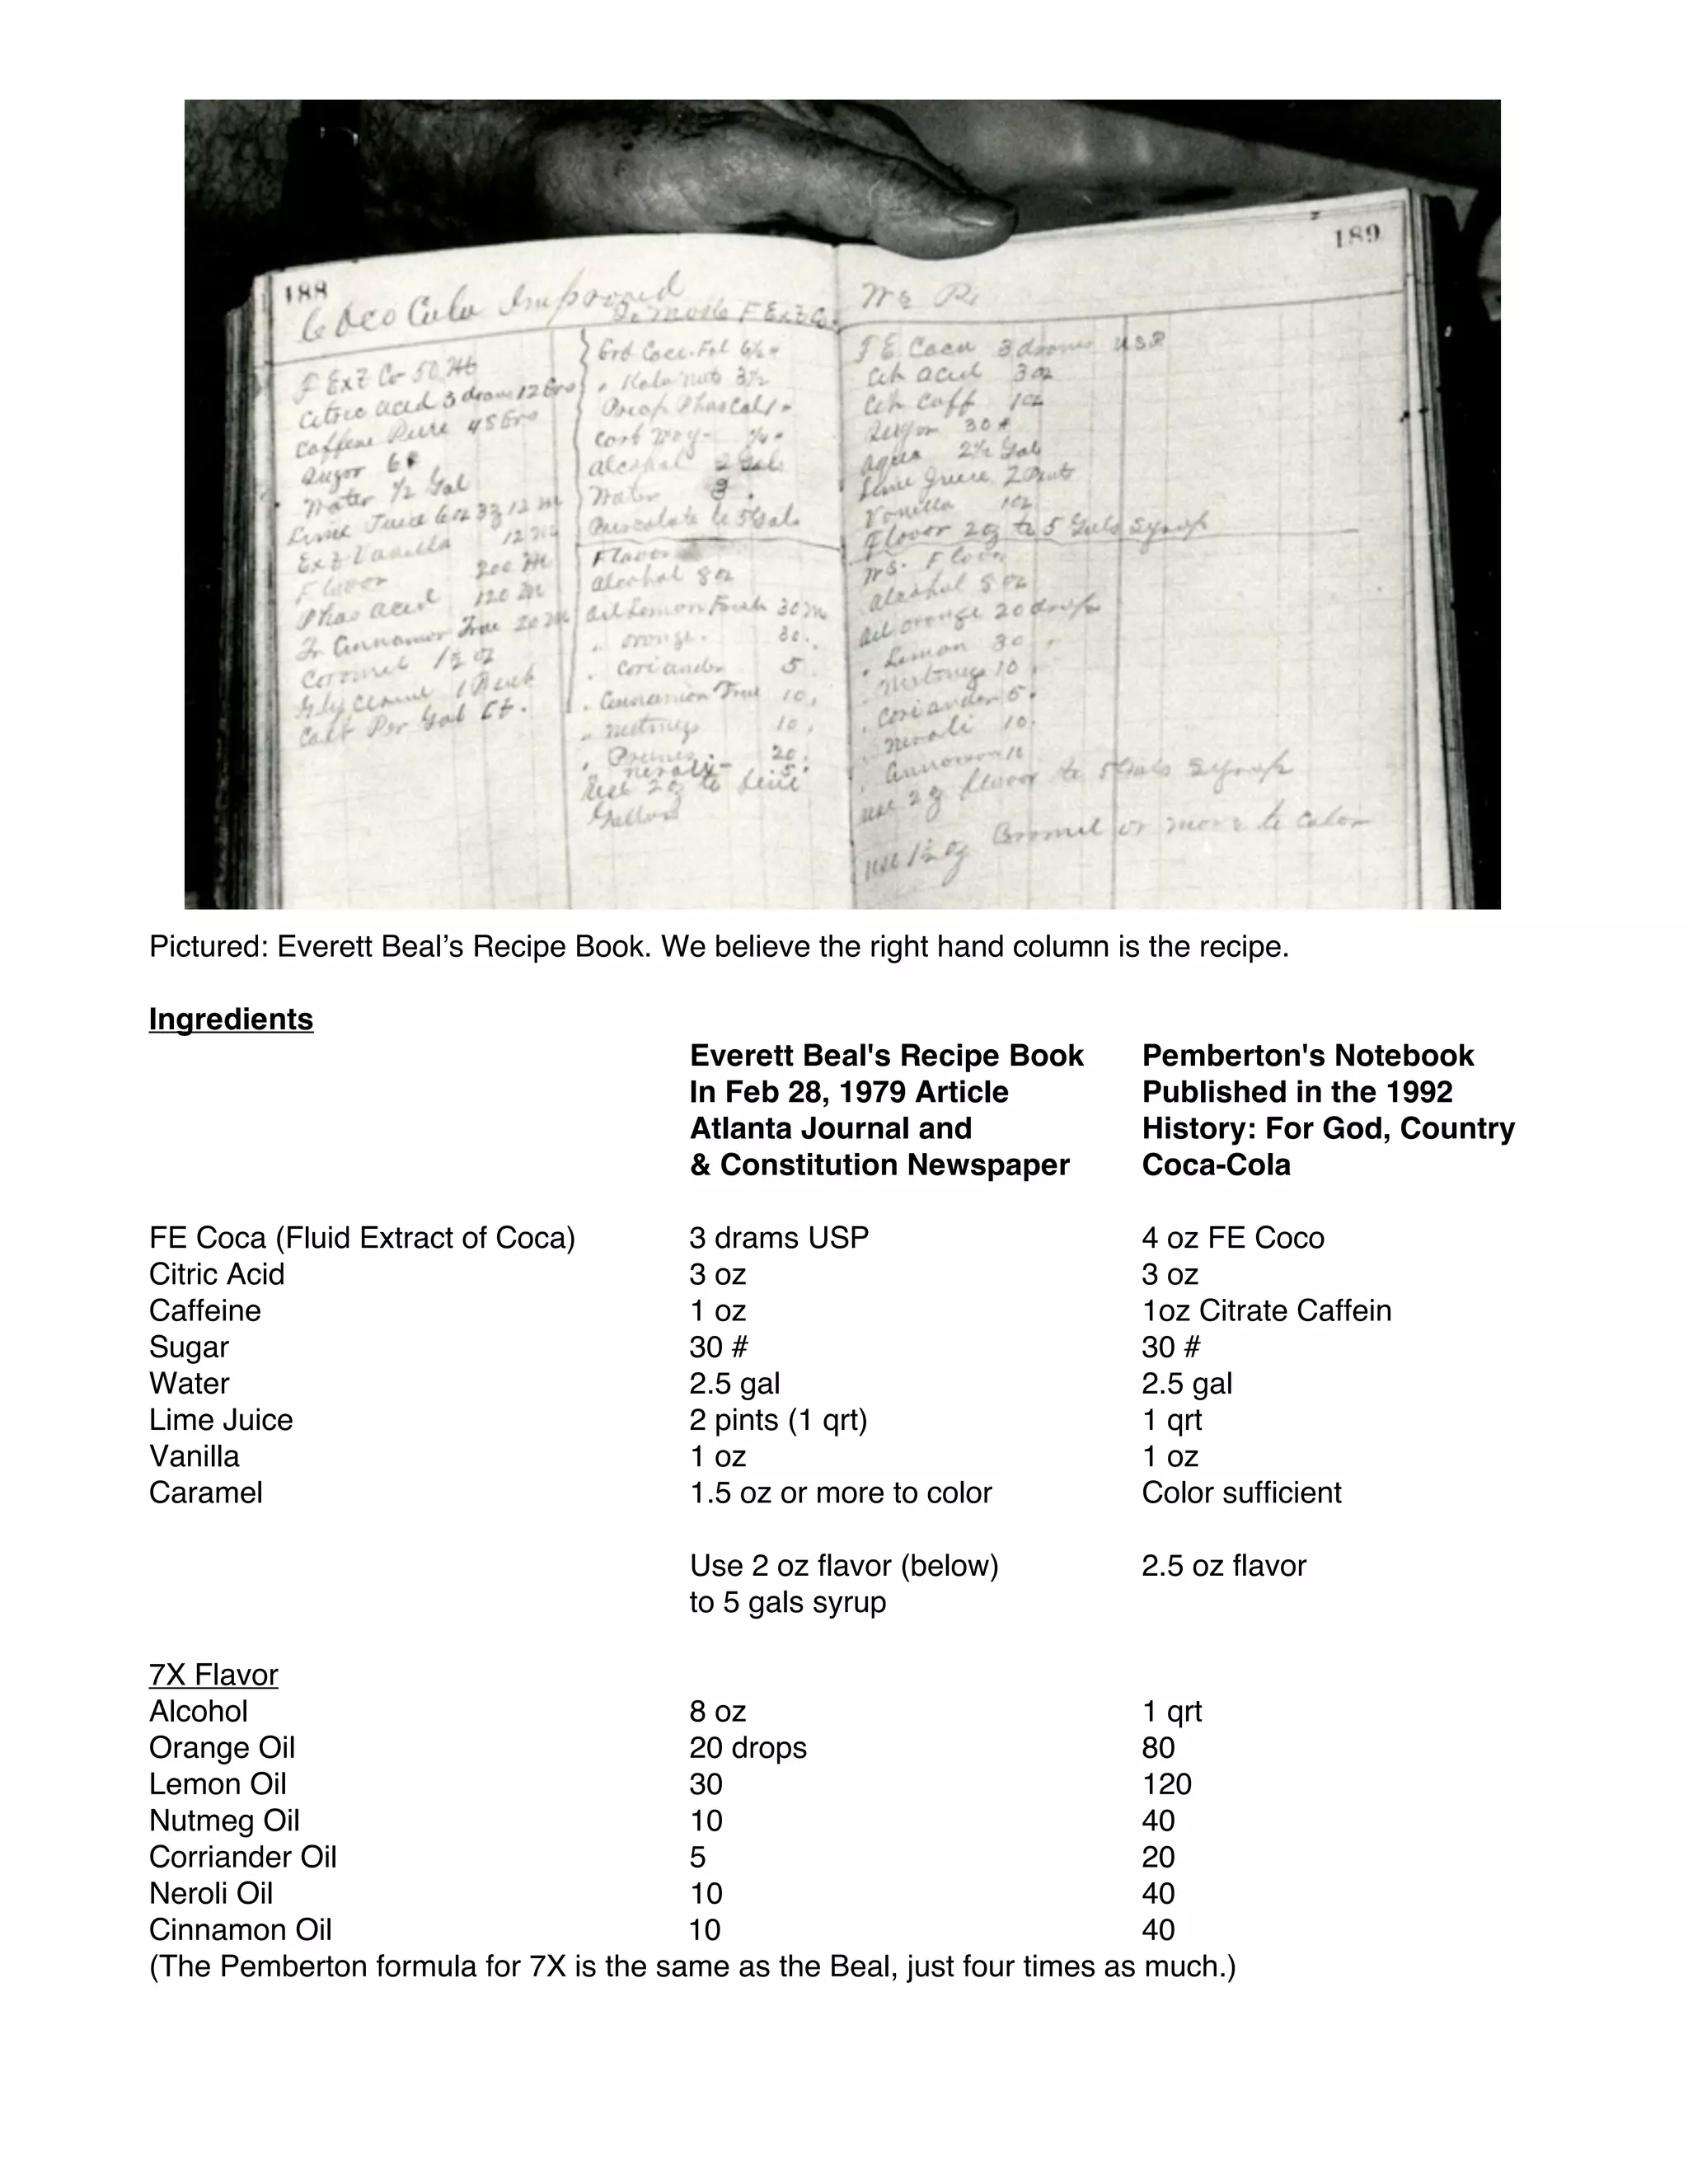 188
189
Coco Cola Improved
To Make F Ext Co.
F Ext Co 50 M
Citric acid 3 dram 12 Grs
Caffeine Pure 45 Grs
Sugor 6#
Water 1/2 Gal
Lime Juice 6 oz 3ʒ 12 m
Ext Vanilla 12 M
Flavor 200 M
Phos acid 120 M
Tr Cinnamon True 20 M
Coromel 1½ oz
Cost Per Gal
Grd Coca
Kola nut 3½
alcohol 2 Gals
Water
Percolate to 5 Gals
Flavor
alcohol 8 oz
Oil Lemon Fresh 30 m
" orange. 30.
" Coriander 5
" Cinnamon True 10,
" nutmeg 10,
20.
neroly 5.
Use 2 oz to five
Gallons
F E Coca 3 drams USP
Cit acid 3 oz
Cit Caff 1 oz
Sugor 30#
Aqua 2½ Gal
Lime Juice 2 Pints
Vanilla 1 oz
Flavor 2 oz to 5 Gals Syrup
Flavor
alcohol 8 oz
Oil orange 20 drops
" Lemon 30 "
" Nutmeg 10 "
" Coriander 5.
" neroli 10.
use 2 oz flavor to 5 Gals Syrup
use 1½ oz Coromel or more to Color
Pictured: Everett Beal’s Recipe Book. We believe the right hand column is the recipe.
Ingredients
Everett Beal's Recipe Book Pemberton's Notebook
In Feb 28, 1979 Article Published in the 1992
Atlanta Journal and History: For God, Country
& Constitution Newspaper Coca-Cola
FE Coca (Fluid Extract of Coca) 3 drams USP 4 oz FE Coco
Citric Acid 3 oz 3 oz
Caffeine 1 oz 1oz Citrate Caffein
Sugar 30 # 30 #
Water 2.5 gal 2.5 gal
Lime Juice 2 pints (1 qrt) 1 qrt
Vanilla 1 oz 1 oz
Caramel 1.5 oz or more to color Color sufficient
Use 2 oz flavor (below) 2.5 oz flavor
to 5 gals syrup
7X Flavor
Alcohol 8 oz 1 qrt
Orange Oil 20 drops 80
Lemon Oil 30 120
Nutmeg Oil 10 40
Corriander Oil 5 20
Neroli Oil 10 40
Cinnamon Oil 10 40
(The Pemberton formula for 7X is the same as the Beal, just four times as much.)